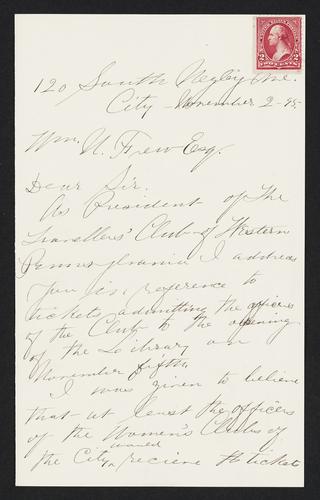 120 South Negley Ave.
City - November 2 - 95.
Wm. N. Frew Esq.
Dear Sir:
As President of the
Travellers' Club of Western
Pennsylvania I address
you in reference to
tickets admitting the officers
of the Club to the opening
of the Library on
November fifth.
I was given to believe
that - at least the officers
of the Women's Clubs of
the City would recieve tickets